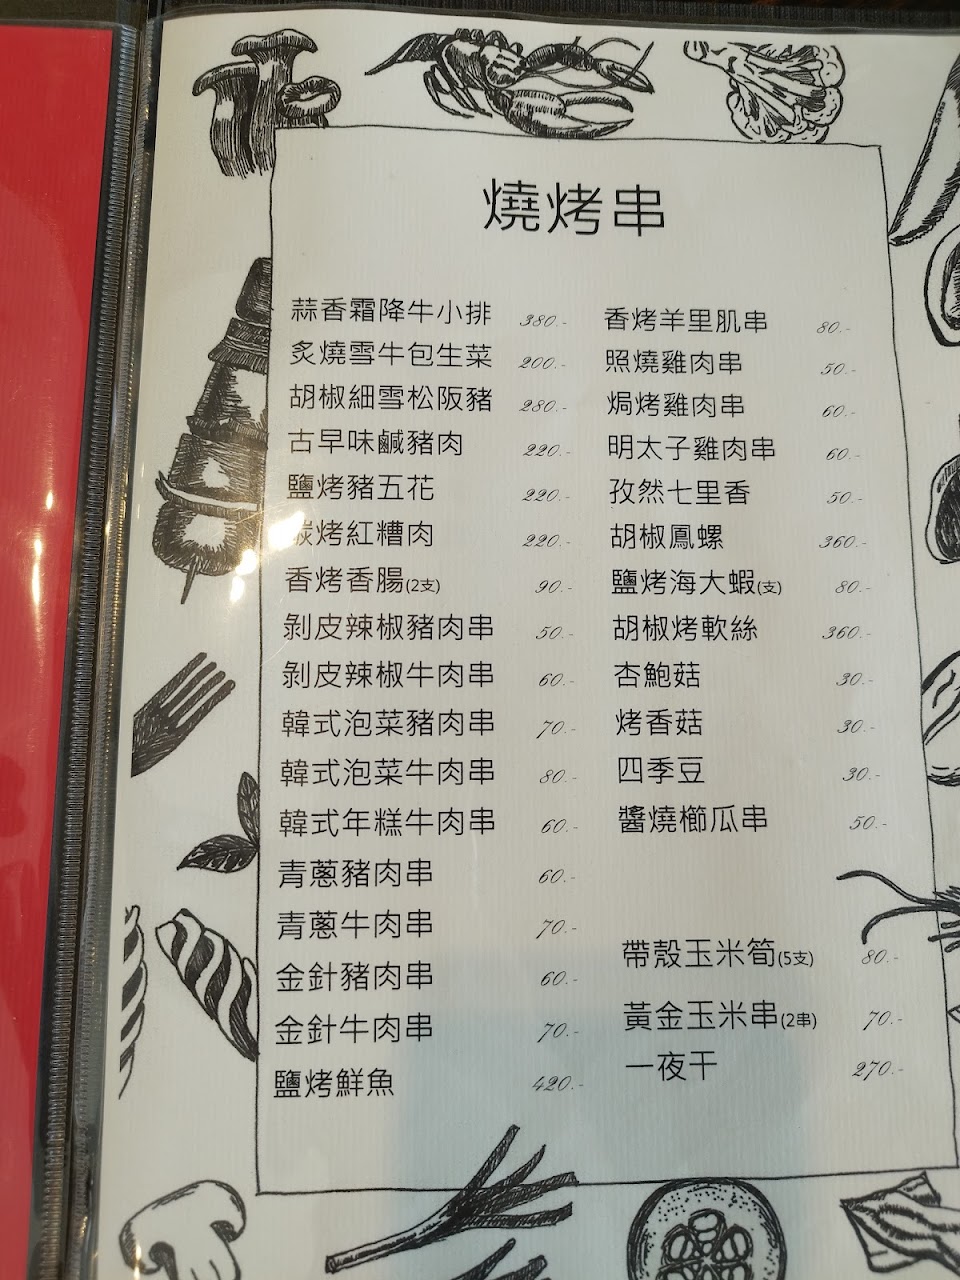 燒烤串
蒜香霜降牛小排 380.-
炙燒雪牛包生菜 200.-
胡椒細雪松阪豬 280.-
古早味鹹豬肉 220.-
鹽烤豬五花 220.-
碳烤紅糟肉 220.-
香烤香腸(2支) 90.-
剝皮辣椒豬肉串 50.-
剝皮辣椒牛肉串 60.-
韓式泡菜豬肉串 70.-
韓式泡菜牛肉串 80.-
韓式年糕牛肉串 60.-
青蔥豬肉串 60.-
青蔥牛肉串 70.-
金針豬肉串 60.-
金針牛肉串 70.-
鹽烤鮮魚 420.-
香烤羊里肌串 80.-
照燒雞肉串 50.-
焗烤雞肉串 60.-
明太子雞肉串 60.-
孜然七里香 50.-
胡椒鳳螺 360.-
鹽烤海大蝦(支) 80.-
胡椒烤軟絲 360.-
杏鮑菇 30.-
烤香菇 30.-
四季豆 30.-
醬燒櫛瓜串 50.-
帶殼玉米筍(5支) 80.-
黃金玉米串(2串) 70.-
一夜干 270.-